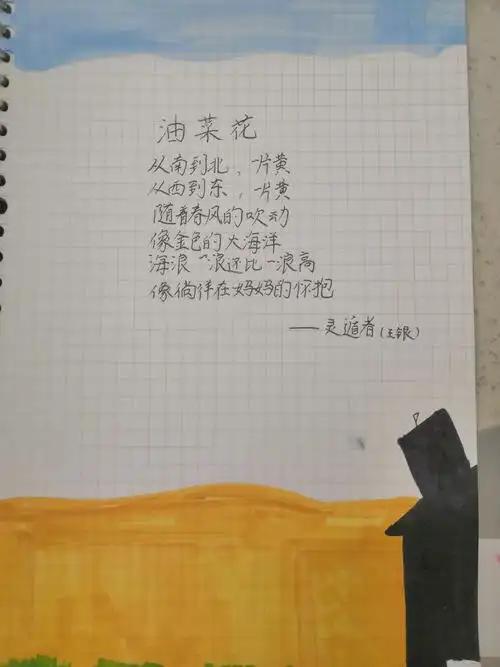 油菜花
从南到北，一片黄
从西到东，一片黄
随着春风的吹动
像金色的大海洋
海浪一浪还比一浪高
像徜徉在妈妈的怀抱
——灵遁者(王银)